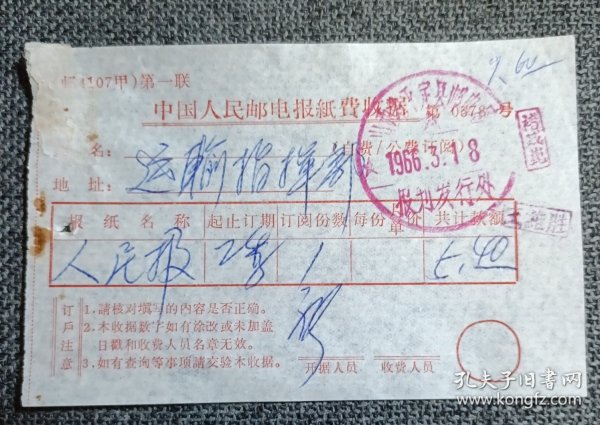 (107甲)第一联
9.60
中国人民邮电报紙費收据 第 0378 号
名: 运输指挥部 (自費/公費订阅)
地 址:
1966.3.18
报刊发行处
报 纸 名 称 起止订期 订阅份数 每份 单价 共计款额
人民报 2季 1 5.40
订戶注意
1.請核对填写的内容是否正确。
2.本收据数字如有涂改或未加盖
日戳和收费人员名章无效。
3.如有查询等事項請交验本收据。
开据人员 收费人员
孔夫子旧书网
www.kongfz.com